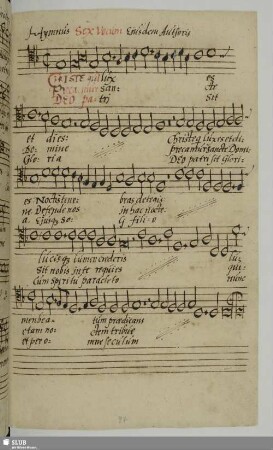 Hymnus Sex Vocum Eiusdem Auctoris
CHRISTE qui lux es
Precamur San- cte
DEO pa- tri sit
et dies: Christe q lux es et di-
Do- mine precamur sancte Domi-
Glo- ria DEO patri sit Glori-
es Noctis tene- bras detegis
ne Defende nos in hac nocte
a Eiusq, so- li fili- o
lucisq, lumen crederis lu-
Sit nobis in te requies qui-
Cum spiritu paraclito et nunc
men bea- tum praedicans
etam no- ctem tribue
et per o- mne seculum
SLUB